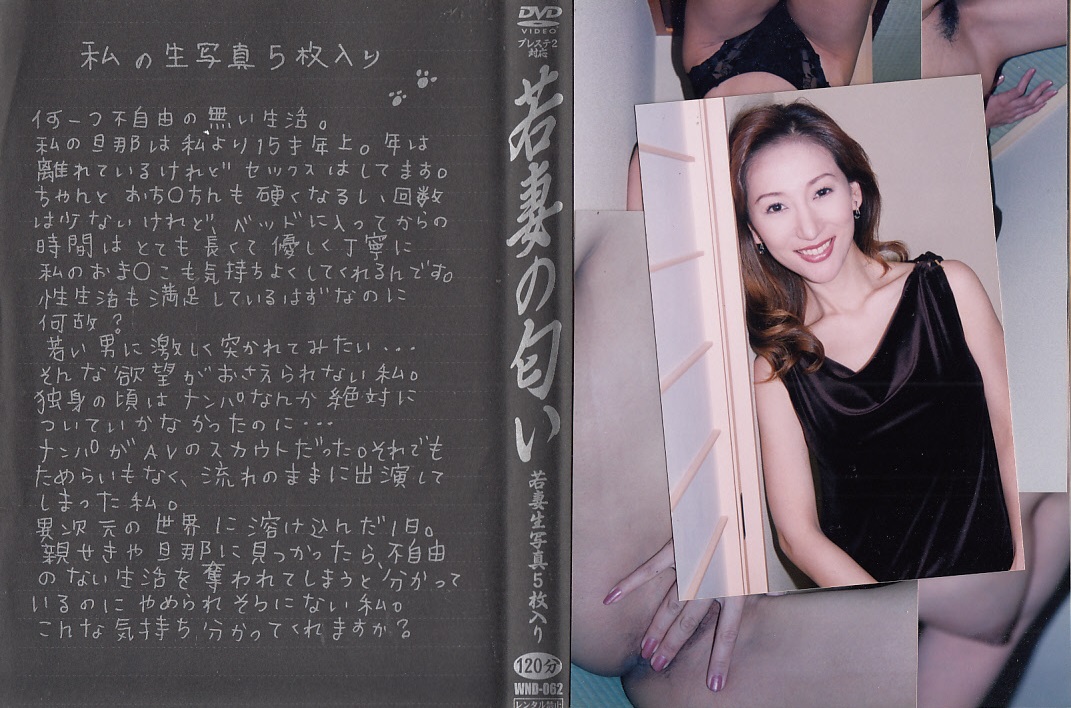 私の生写真5枚入り
何一つ不自由の無い生活。
私の旦那は私より15才年上。年は
離れているけれど セックスはしてます。
ちゃんと おち〇ちんも硬くなるし、回数
は少ないけれど、ベッドに入ってからの
時間はとても長くて優しく丁寧に
私のおま〇こも気持ちよくしてくれるんです。
性生活も満足しているはずなのに
何故?
若い男に激しく突かれてみたい・・・
そんな欲望がおさえられない私。
独身の頃はナンパなんか絶対に
ついていかなかったのに・・・
ナンパがAVのスカウトだった。それでも
ためらいもなく、流れのままに出演して
しまった私。
異次元の世界に溶け込んだ1日。
親せきや旦那に見つかったら、不自由
のない生活を奪われてしまうと分かって
いるのに やめられそうにない私。
こんな気持ち分かってくれますか?
DVD
VIDEO
プレステ2
対応
若妻の匂い
若妻生写真5枚入り
120分
WND-062
レンタル禁止